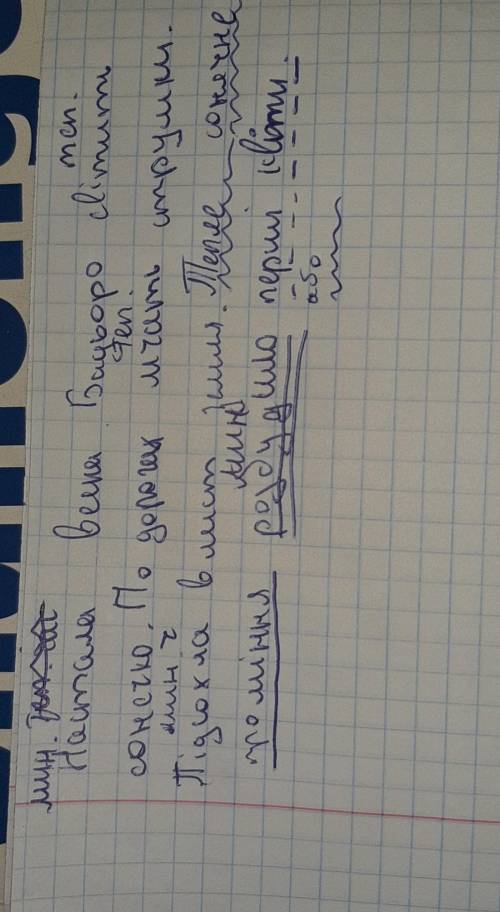 мин. теп.
Настала весна Бадьоро світить
теп.
сонечко. По дорогах мчать струмки.
мин. ч
Підсохла в земля. Тепле сонячне
мин
проміння розбудило перші квіти.
або